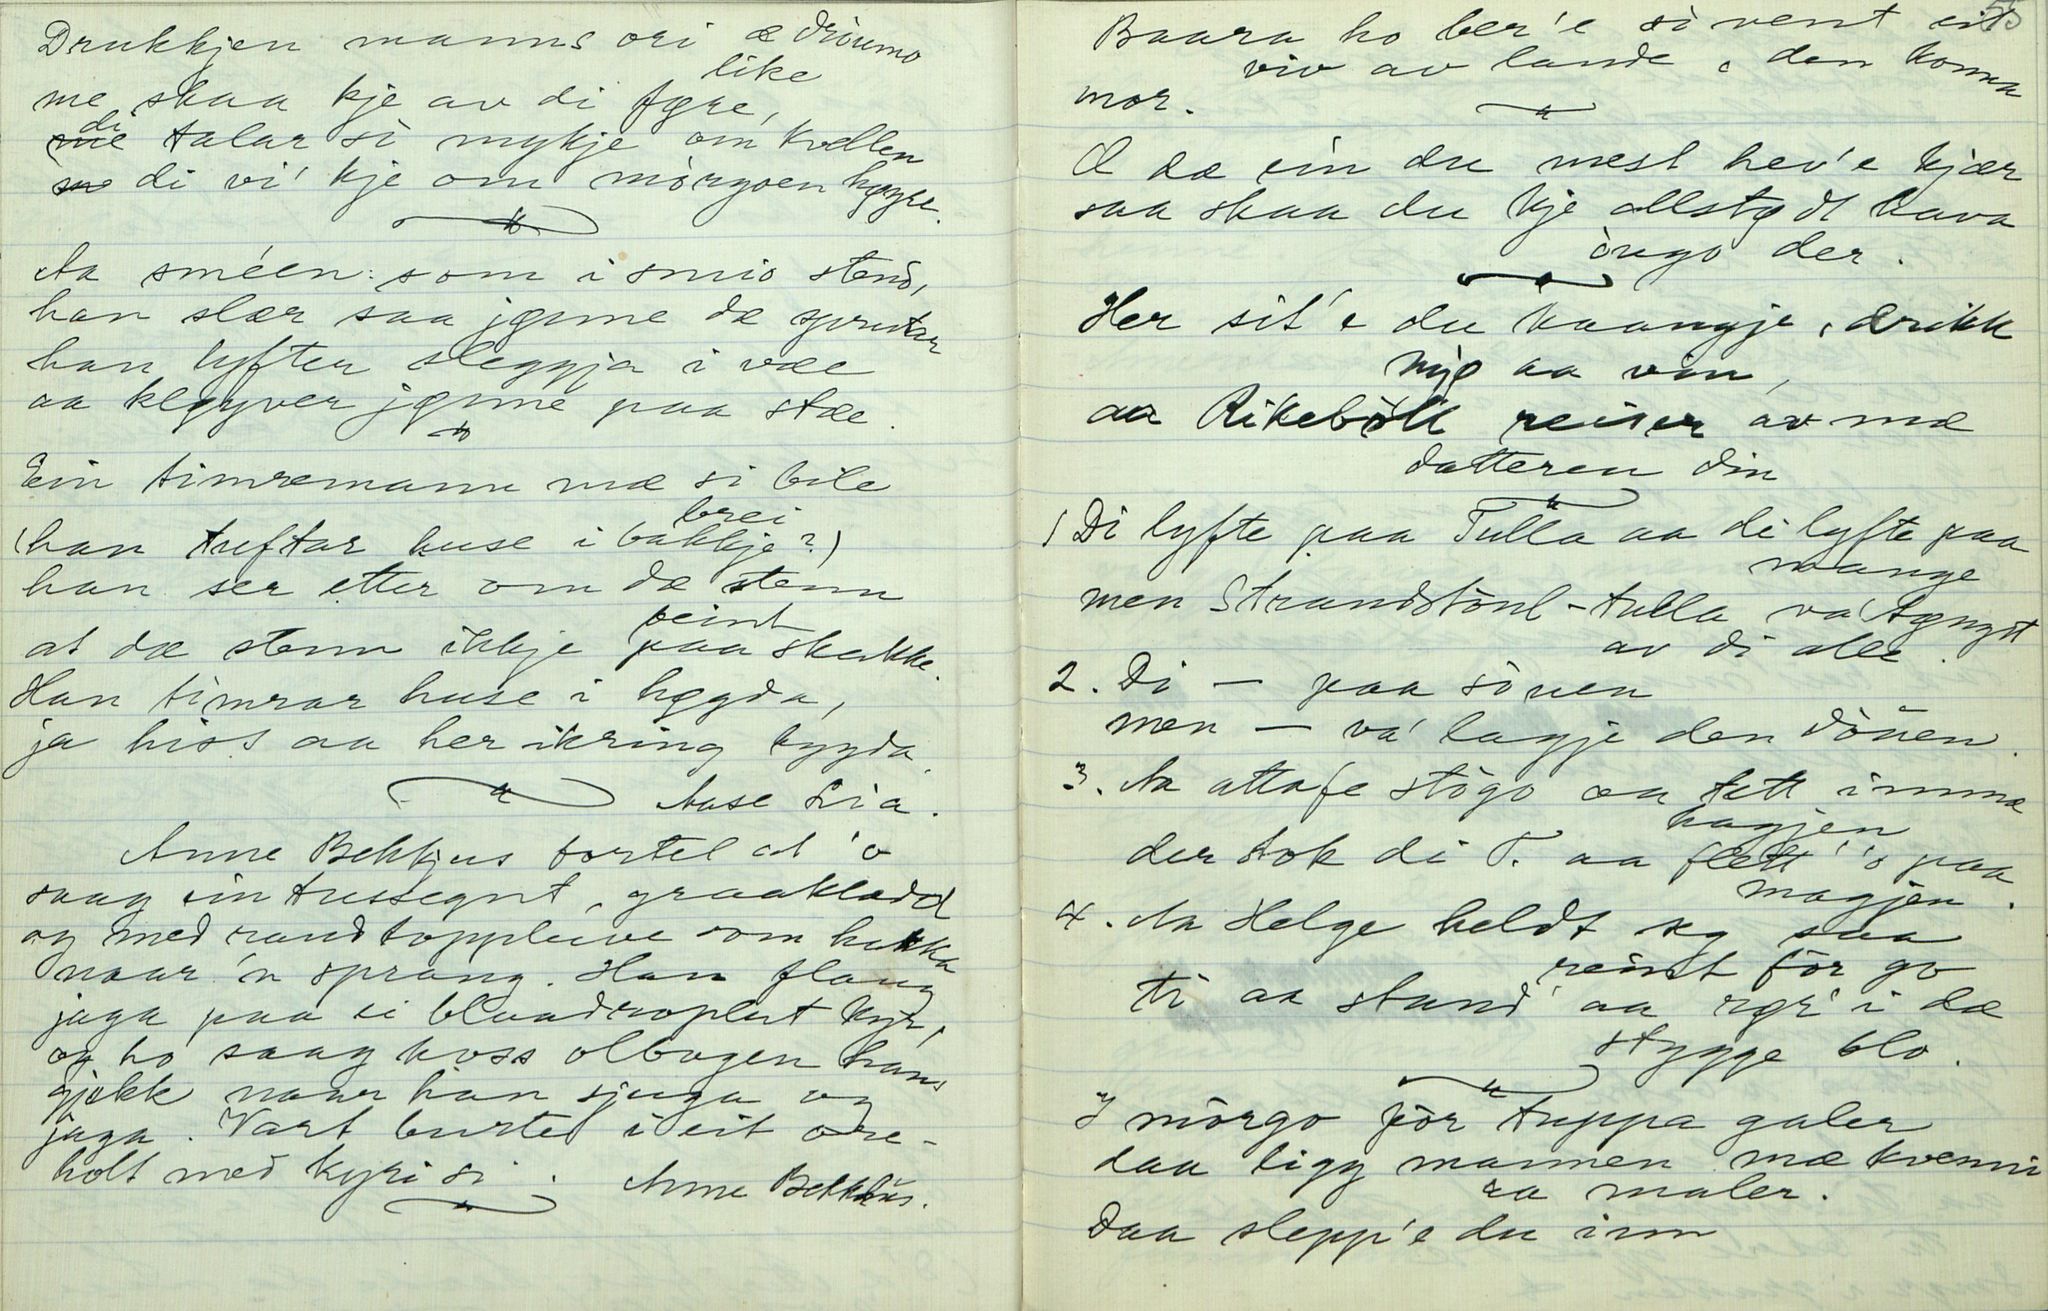 Drukkjen manns ori æ drøumo
like
me skaa kje av di føre,
di talar sò mykje om kvellen
di vi' kje om mòrgoen høgre.
Aa sméen som i smio stend,
han slær saa jønne dæ sprutar
han lyfter sleggja i væe
aa kløyver jønne paa stæe.
Ein timremann mæ si bile
brei
(han tuftar huse i bakkje?)
han ser etter om dæ stenn
beint
at dæ stenn ikkje paa skakke.
Han timrar huse i høgda,
ja hiss aa her ikring bygda.
Aase Lia.
Anne Bekkjus fortel at 'o
saag ein tussegut, graakledd
og med randtoppluve som hekk
naar 'n sprang. Han flaug
jaga paa ei blaadroplut kyr,
og ho saag hoss olbogen hans
gjekk naar han sjuga og
jaga. Vart burte i eit ore-
holt med kyri si. Anne Bekkhus.
55
Baara ho ber'e sò vent eit
viv av lande, den komma
mor.
O dæ ein du mest hev'e kjær
saa skaa du kje allstødt hava
òugo der.
Her sit'e du kaangje, drikk
mjø aa vin,
aa Rikeboll reiser av mæ
datteren din
1 Di lyfte paa Tulla aa di lyfte paa
mange
men Strandstòul-tulla va' tøngst
av di alle.
2. Di — paa sòuen
men — va' lagje den dòuen.
3. Aa attafe stògo aa tett innmæ
hagjen
der tok di T. aa flett' 'o paa
magjen.
4. Aa Helge heldt sø saa
reint for go
ti aa stand' aa rør' i dæ
stygge blo.
I mòrgo fòr tuppa galer
daa ligg mannen mæ kvenni
aa maler.
Daa slepp'e du inn